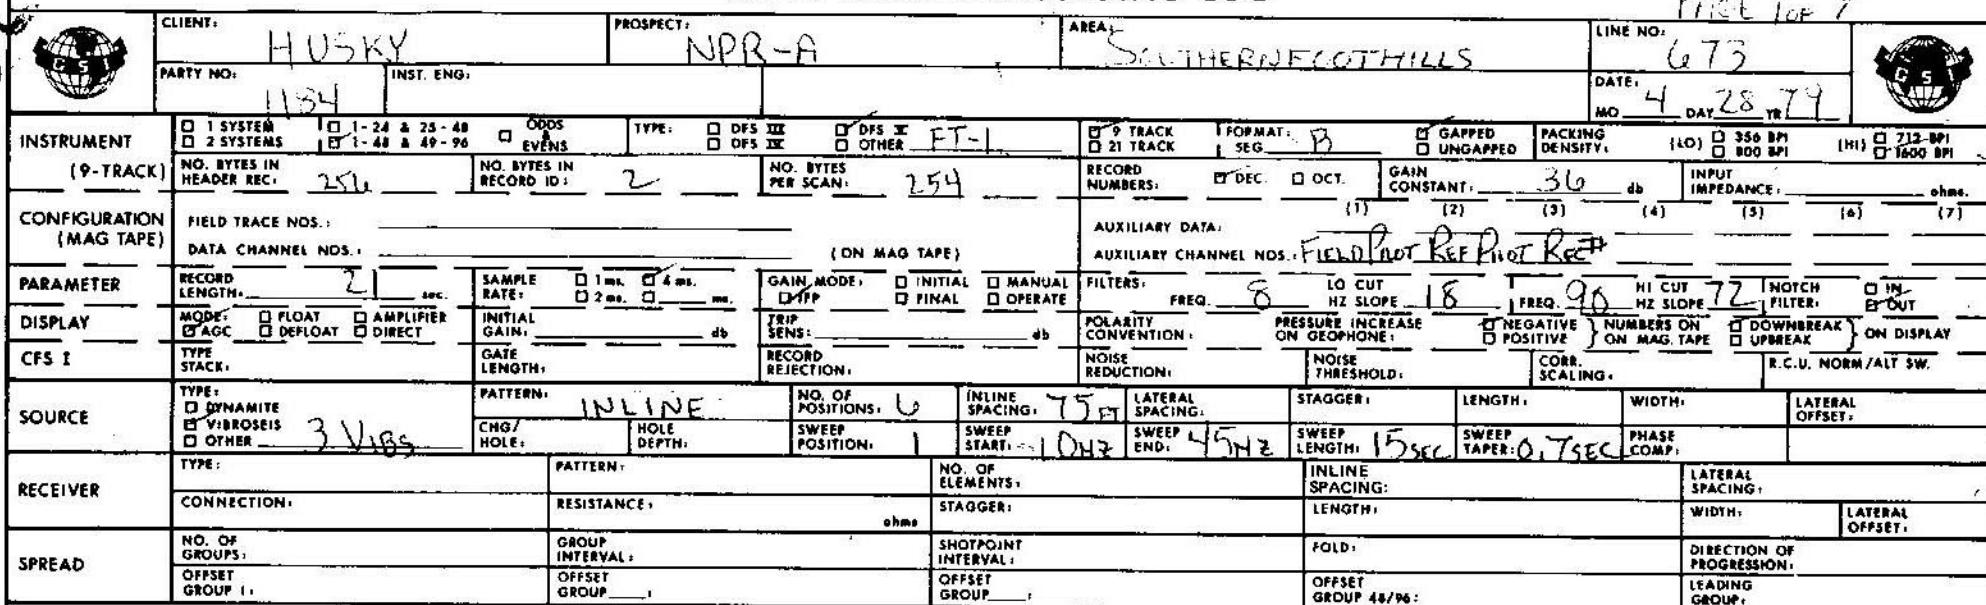 PAGE 1 OF 7
CLIENT: HUSKY PROSPECT: NPR-A AREA: SOUTHERN FOOTHILLS LINE NO: 673
GSI
PARTY NO: 1184 INST. ENG: DATE: MO 4 DAY 28 YR 79
GSI
INSTRUMENT (9-TRACK)
1 SYSTEM 1-24 & 25-48 ODDS & EVENS TYPE: DFS III DFS V FT-1 9 TRACK FORMAT: SEG B GAPPED PACKING DENSITY: (LO) 356 BPI (HI) 712-BPI
2 SYSTEMS 1-48 & 49-96 DFS IV OTHER 21 TRACK UNGAPPED 800 BPI 1600 BPI
NO. BYTES IN HEADER REC: 256 NO. BYTES IN RECORD ID: 2 NO. BYTES PER SCAN: 254 RECORD NUMBERS: DEC. OCT. GAIN CONSTANT: 36 db INPUT IMPEDANCE: ohms.
CONFIGURATION (MAG TAPE)
FIELD TRACE NOS.: AUXILIARY DATA: (1) (2) (3) (4) (5) (6) (7)
DATA CHANNEL NOS.: (ON MAG TAPE) AUXILIARY CHANNEL NOS.: FIELD PILOT REF PILOT REC#
PARAMETER RECORD LENGTH: 21 sec. SAMPLE RATE: 1 ms. 4 ms. 2 ms. ms. GAIN MODE: INITIAL MANUAL IFP FINAL OPERATE FILTERS: FREQ. 8 LO CUT HZ SLOPE 18 FREQ. 90 HI CUT HZ SLOPE 72 NOTCH FILTER: IN OUT
DISPLAY MODE: FLOAT AMPLIFIER AGC DEFLOAT DIRECT INITIAL GAIN: db TRIP SENS: db POLARITY CONVENTION: PRESSURE INCREASE ON GEOPHONE: NEGATIVE POSITIVE } NUMBERS ON MAG. TAPE DOWNBREAK UPBREAK } ON DISPLAY
CFS I TYPE STACK: GATE LENGTH: RECORD REJECTION: NOISE REDUCTION: NOISE THRESHOLD: CORR. SCALING: R.C.U. NORM/ALT SW.
SOURCE TYPE: DYNAMITE VIBROSEIS OTHER 3 VIBS PATTERN: INLINE NO. OF POSITIONS: 6 INLINE SPACING: 75 FT LATERAL SPACING: STAGGER: LENGTH: WIDTH: LATERAL OFFSET:
CHG/HOLE: HOLE DEPTH: SWEEP POSITION: 1 SWEEP START: 10HZ SWEEP END: 45HZ SWEEP LENGTH: 15SEC SWEEP TAPER: 0.7SEC PHASE COMP:
RECEIVER TYPE: PATTERN: NO. OF ELEMENTS: INLINE SPACING: LATERAL SPACING:
CONNECTION: RESISTANCE: ohms STAGGER: LENGTH: WIDTH: LATERAL OFFSET:
SPREAD NO. OF GROUPS: GROUP INTERVAL: SHOTPOINT INTERVAL: FOLD: DIRECTION OF PROGRESSION:
OFFSET GROUP 1: OFFSET GROUP : OFFSET GROUP : OFFSET GROUP 48/96: LEADING GROUP: